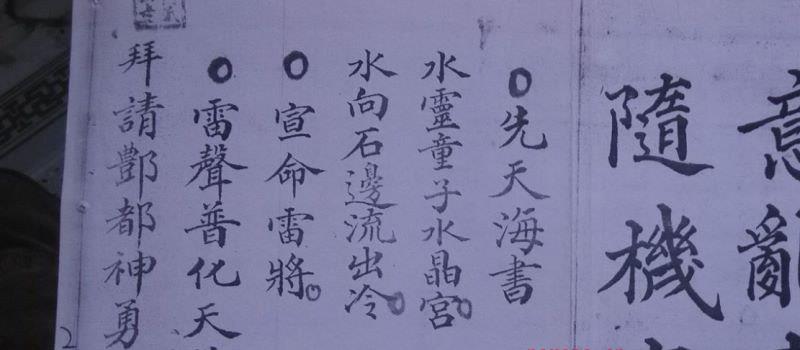 意亂
隨機
〇先天海書
水靈童子水晶宮〇
水向石邊流出冷〇
〇宣命雷將。
〇雷聲普化天
拜請酆都神勇
2